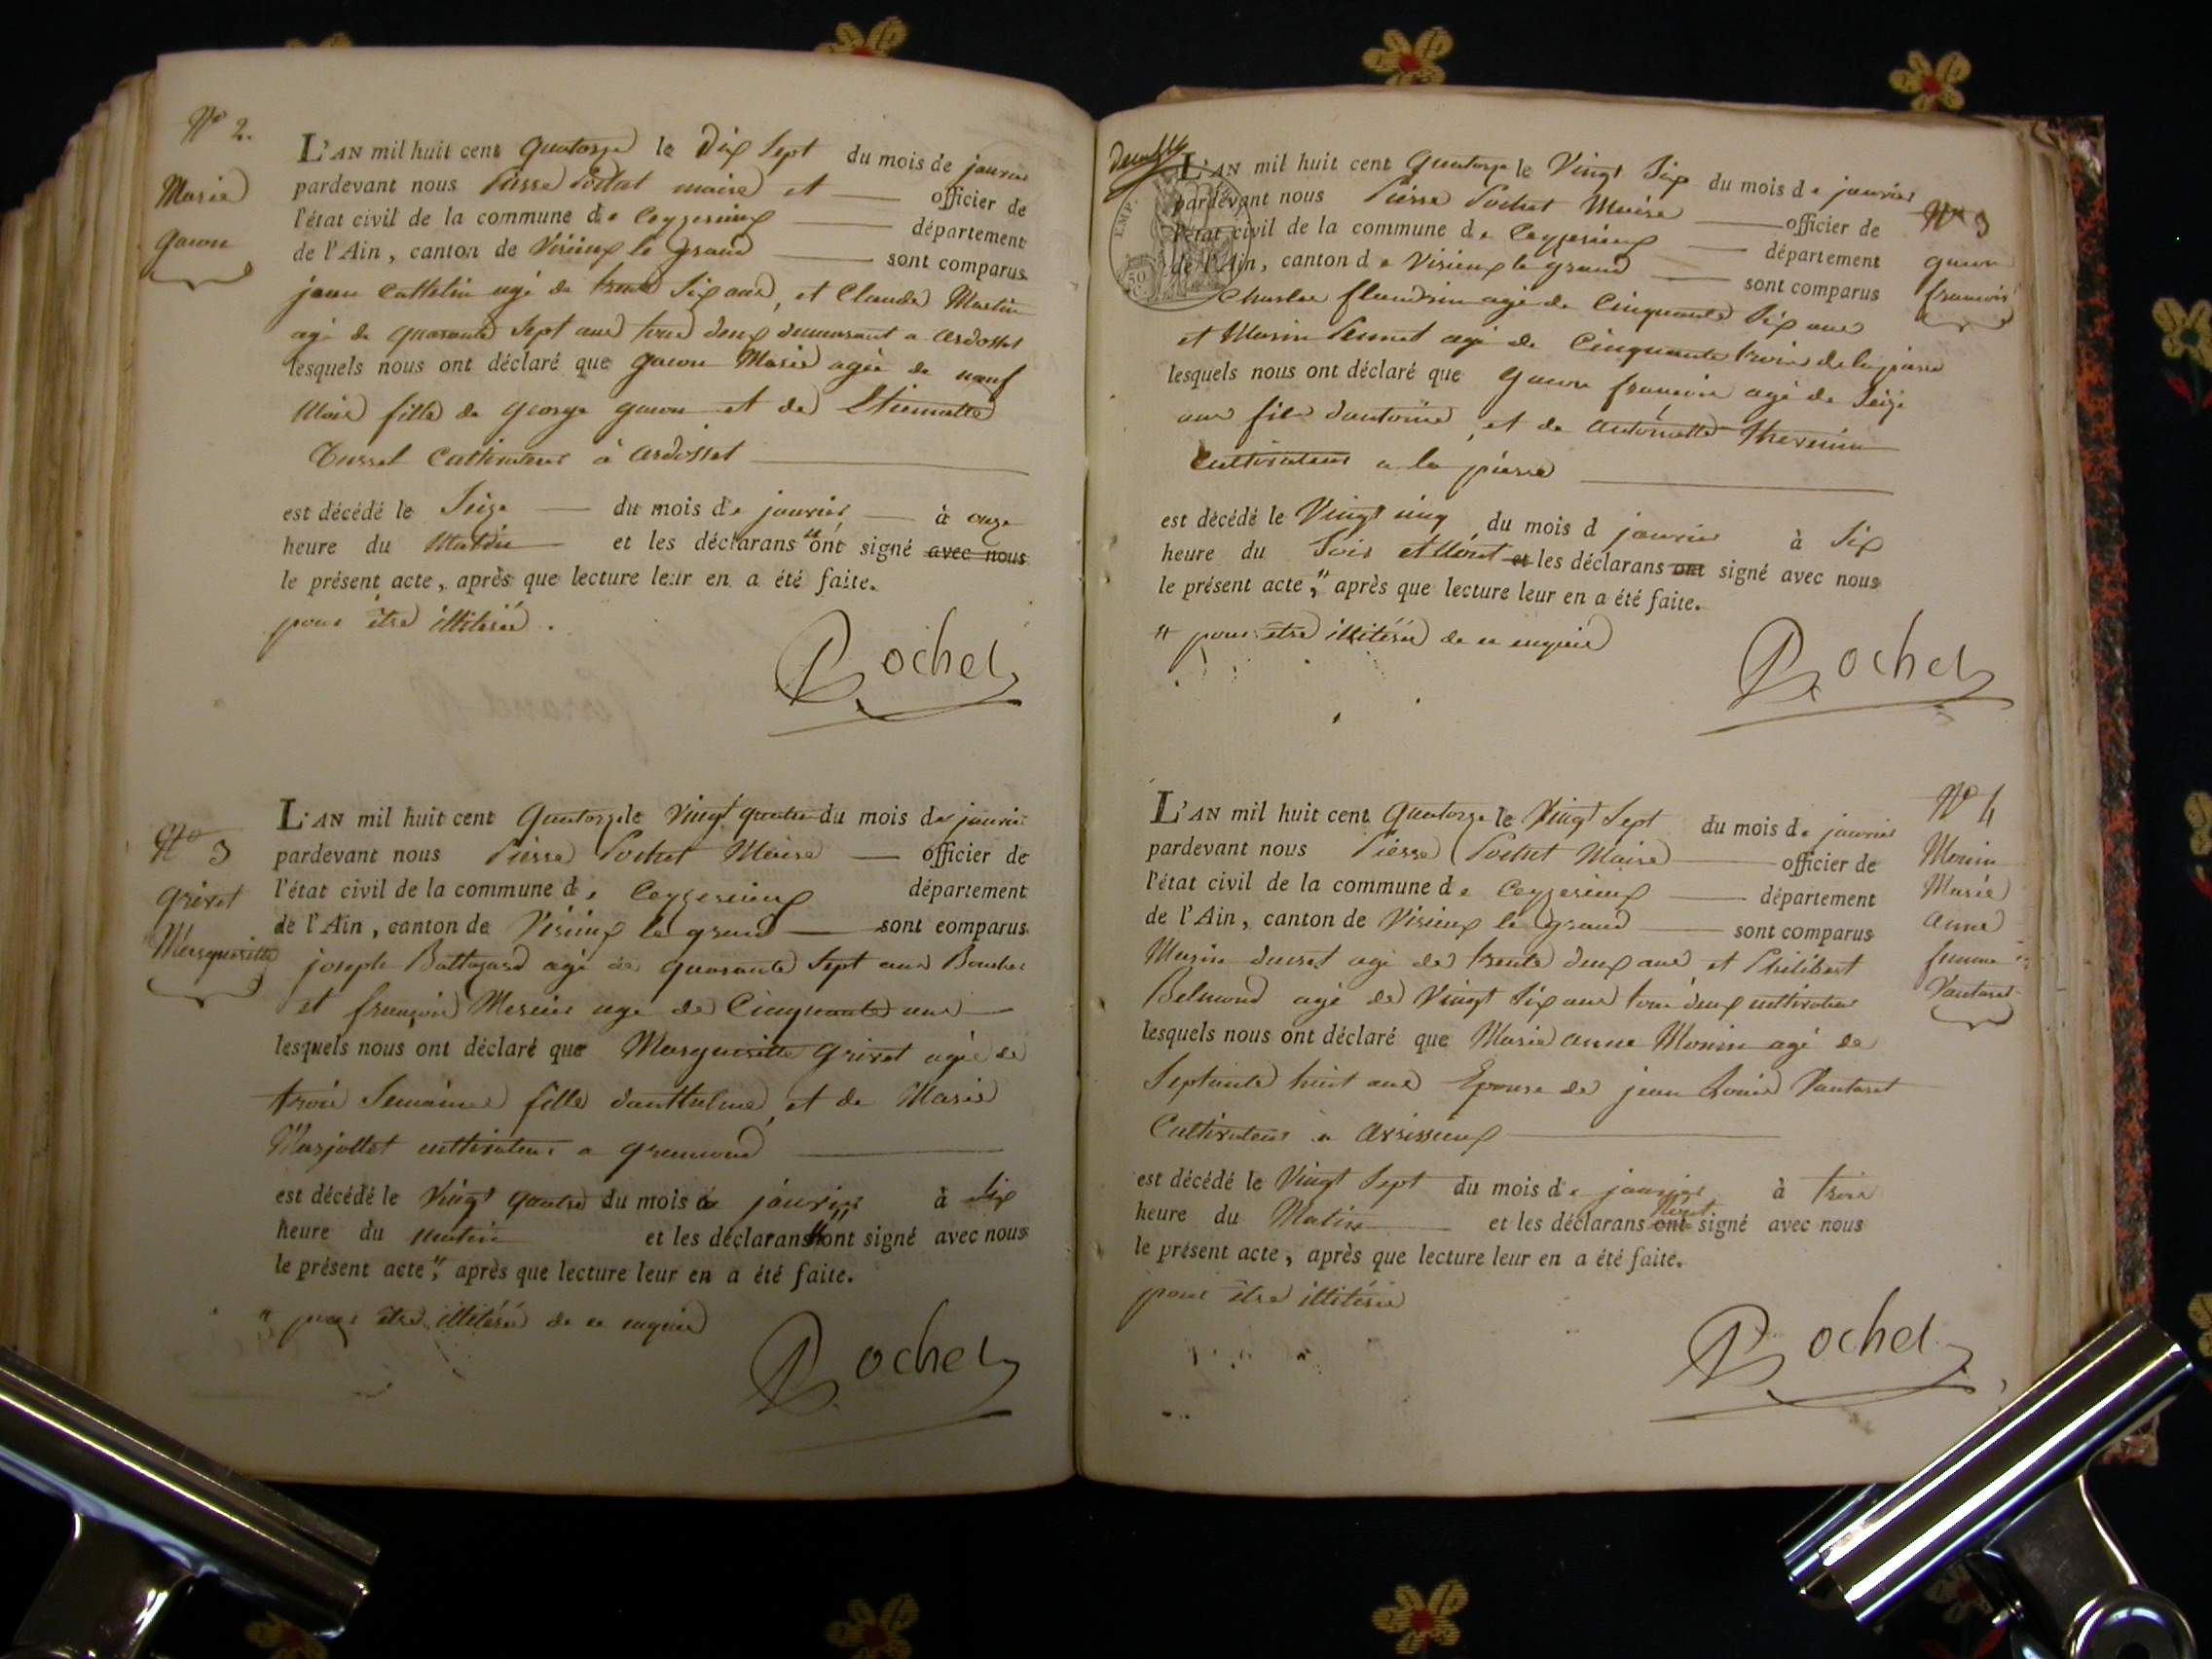 N° 2.
Marie
gacon
L'AN mil huit cent quatorze le Dix Sept du mois de janvier
pardevant nous Pierre Pochet maire et officier de
l'état civil de la commune de Ceyzerieux département
de l'Ain, canton de Virieux le grand sont comparus
jean Cattelin agé de trente Six ans, et Claude Martin
agé de quarante Sept ans tous deux demeurant a ardosset
lesquels nous ont déclaré que gacon Marie agée de neuf
Mois fille de george gacon et de Etiennette
Cultivateur à ardosset
est décédé le Seize du mois de janvier à onze
heure du Matin et les déclarans " ont signé avec nous
le présent acte, après que lecture leur en a été faite.
pour être illiterés.
Pochet
N° 3
grivet
Marguerite
L'AN mil huit cent quatorze le vingt quatre du mois de janvier
pardevant nous Pierre Pochet Maire officier de
l'état civil de la commune de Ceyzerieux département
de l'Ain, canton de Virieux le grand sont comparus
joseph Baltazard agé de quarante Sept ans Boucher
et françois Mercier age de Cinquante ans
lesquels nous ont déclaré que Marguerite grivet agée de
trois Semaines fille d'anthelme, et de Marie
Marjollet cultivateur a gremond
est décédé le Vingt quatre du mois de janvier à Six
heure du matin et les déclarans " ont signé avec nous
le présent acte," après que lecture leur en a été faite.
" pour etre illitérés de ce enquis
Pochet
EMP.
50 C.
L'AN mil huit cent quatorze le Vingt Six du mois de janvier
pardevant nous Pierre Pochet Maire officier de
l'état civil de la commune de Ceyzerieux département
de l'Ain, canton de Virieux le grand sont comparus
Charles flandrin agé de Cinquante Six ans
et Marin agé de Cinquante trois de la pierre
lesquels nous ont déclaré que gacon françois agé de Seize
ans fils d'antoine, et de antoinette thevenin
Cultivateur a la pierre
est décédé le Vingt cinq du mois d janvier à Six
heure du Soir et n'ont et les déclarans ont signé avec nous
le présent acte," après que lecture leur en a été faite.
" pour etre illitérés de ce enquis
Pochet
N° 3
gacon
francois
L'AN mil huit cent quatorze le Vingt Sept du mois de janvier
pardevant nous Pierre Pochet Maire officier de
l'état civil de la commune de Ceyzerieux département
de l'Ain, canton de Virieux le grand sont comparus
Marin ducret agé de trente deux ans et Philibert
Belmond agé de Vingt Six ans tous deux cultivateur
lesquels nous ont déclaré que Marie anne Monin agé de
Septante huit ans Epouse de jean Louis Vautaret
Cultivateur a avrissieux
est décédé le Vingt Sept du mois de janvier à trois
heure du Matin et les déclarans ont n'ont signé avec nous
le présent acte, après que lecture leur en a été faite.
pour être illitérés
Pochet
N° 4
Monin
Marie
anne
femme
Vautaret